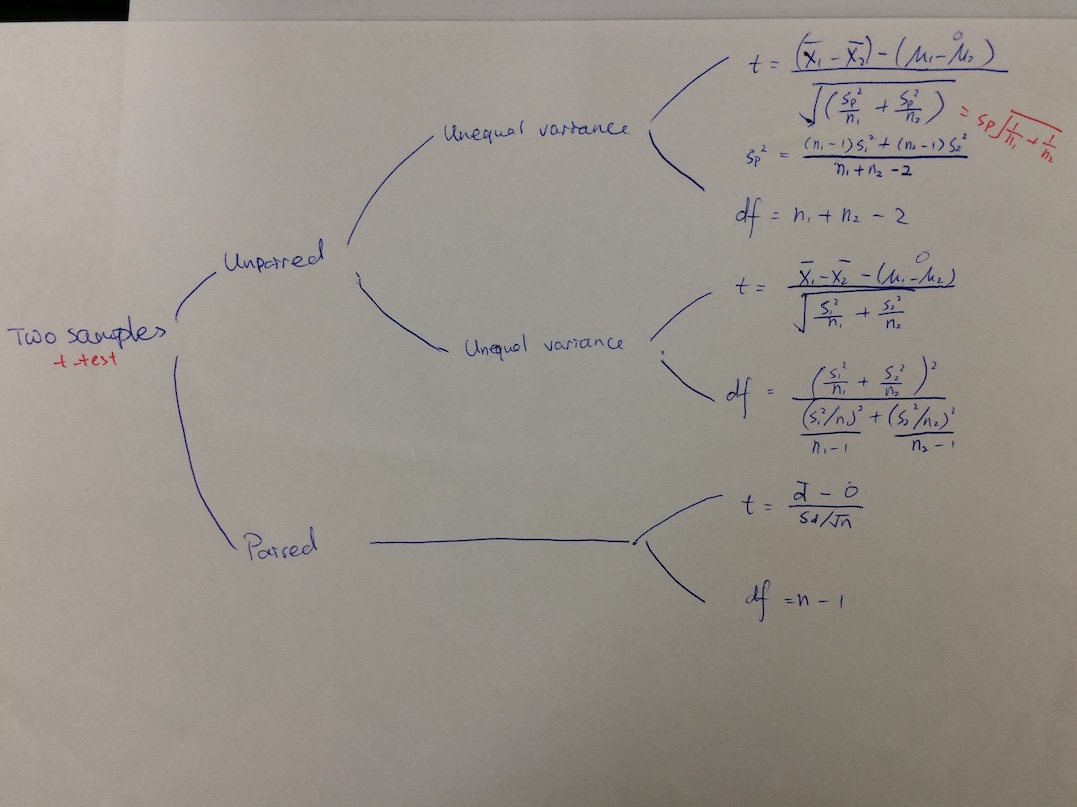 Two samples
t-test
Unpaired
Unequal variance
t = (x̄₁ - x̄₂) - (μ₁ - μ₂) 0 / √(sp²/n₁ + sp²/n₂) = sp√(1/n₁ + 1/n₂)
sp² = (n₁ - 1)s₁² + (n₂ - 1)s₂² / n₁ + n₂ - 2
df = n₁ + n₂ - 2
Unequal variance
t = x̄₁ - x̄₂ - (μ₁ - μ₂) 0 / √(s₁²/n₁ + s₂²/n₂)
df = (s₁²/n₁ + s₂²/n₂)² / (s₁²/n₁)²/n₁ - 1 + (s₂²/n₂)²/n₂ - 1
Paired
t = d̄ - 0 / sd/√n
df = n - 1